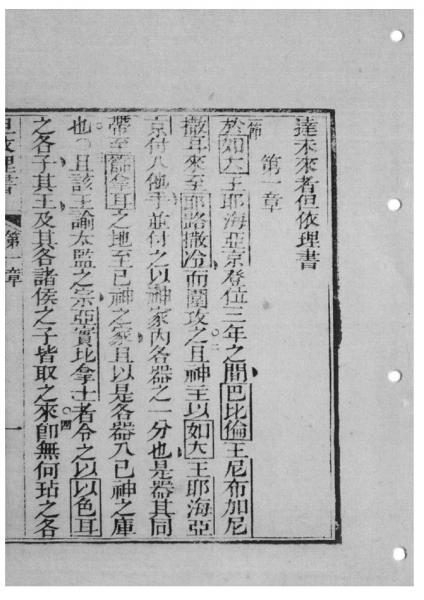 達未來者但依理書
第一章
節一於如大王耶海亞京登位三年之間巴比倫王尼布加尼
撒耳來至耶路撒冷而圍攻之〇二且神主以如大王耶海亞
京付入他手並付之以神家內各器之一分也是器其同
帶至篩拿耳之地至己神之家且以是各器入己神之庫
也〇三且該王諭太監之宗亞實比拿士者令之以以色耳
之各子其王及其各諸侯之子皆取之來〇四卽無何玷之各
但依理書 第一章 一